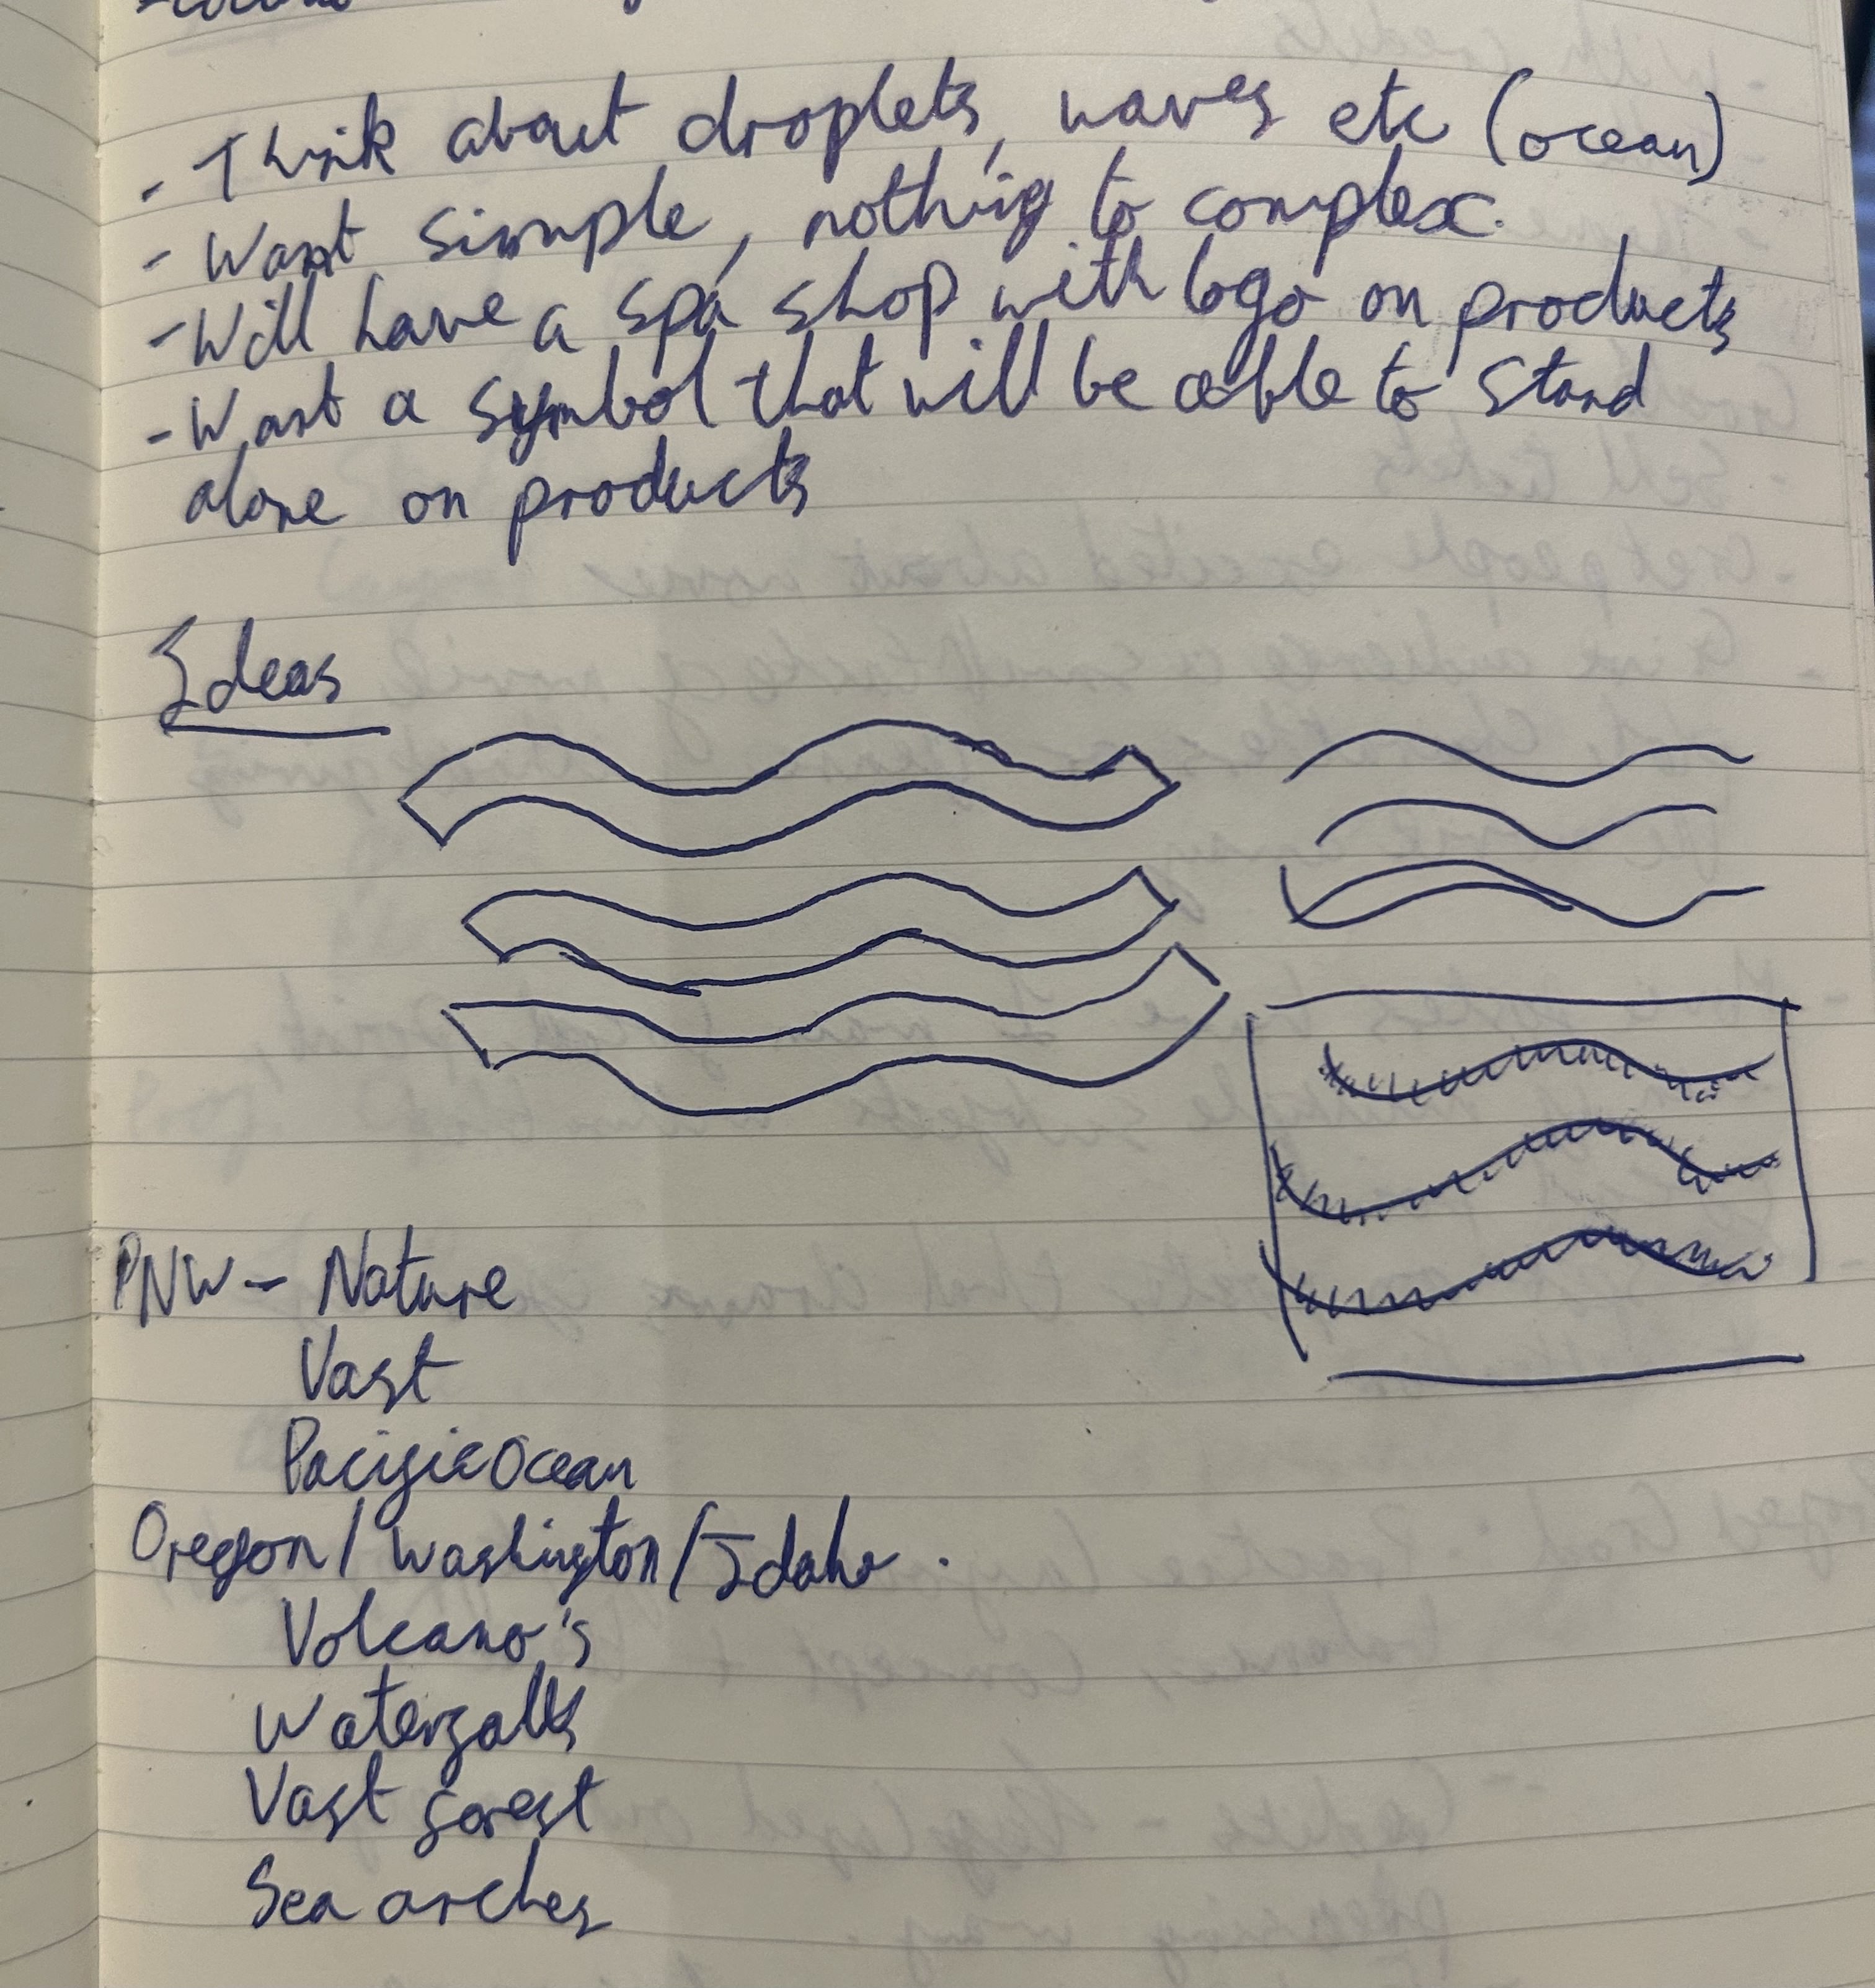 - Think about droplets, waves etc (ocean)
- Want simple, nothing to complex.
- Will have a spa shop with logo on products
- Want a symbol that will be able to stand
alone on products
Ideas
PNW - Nature
Vast
Pacific Ocean
Oregon / Washington / Idaho.
Volcano's
Waterfalls
Vast forest
Sea arches